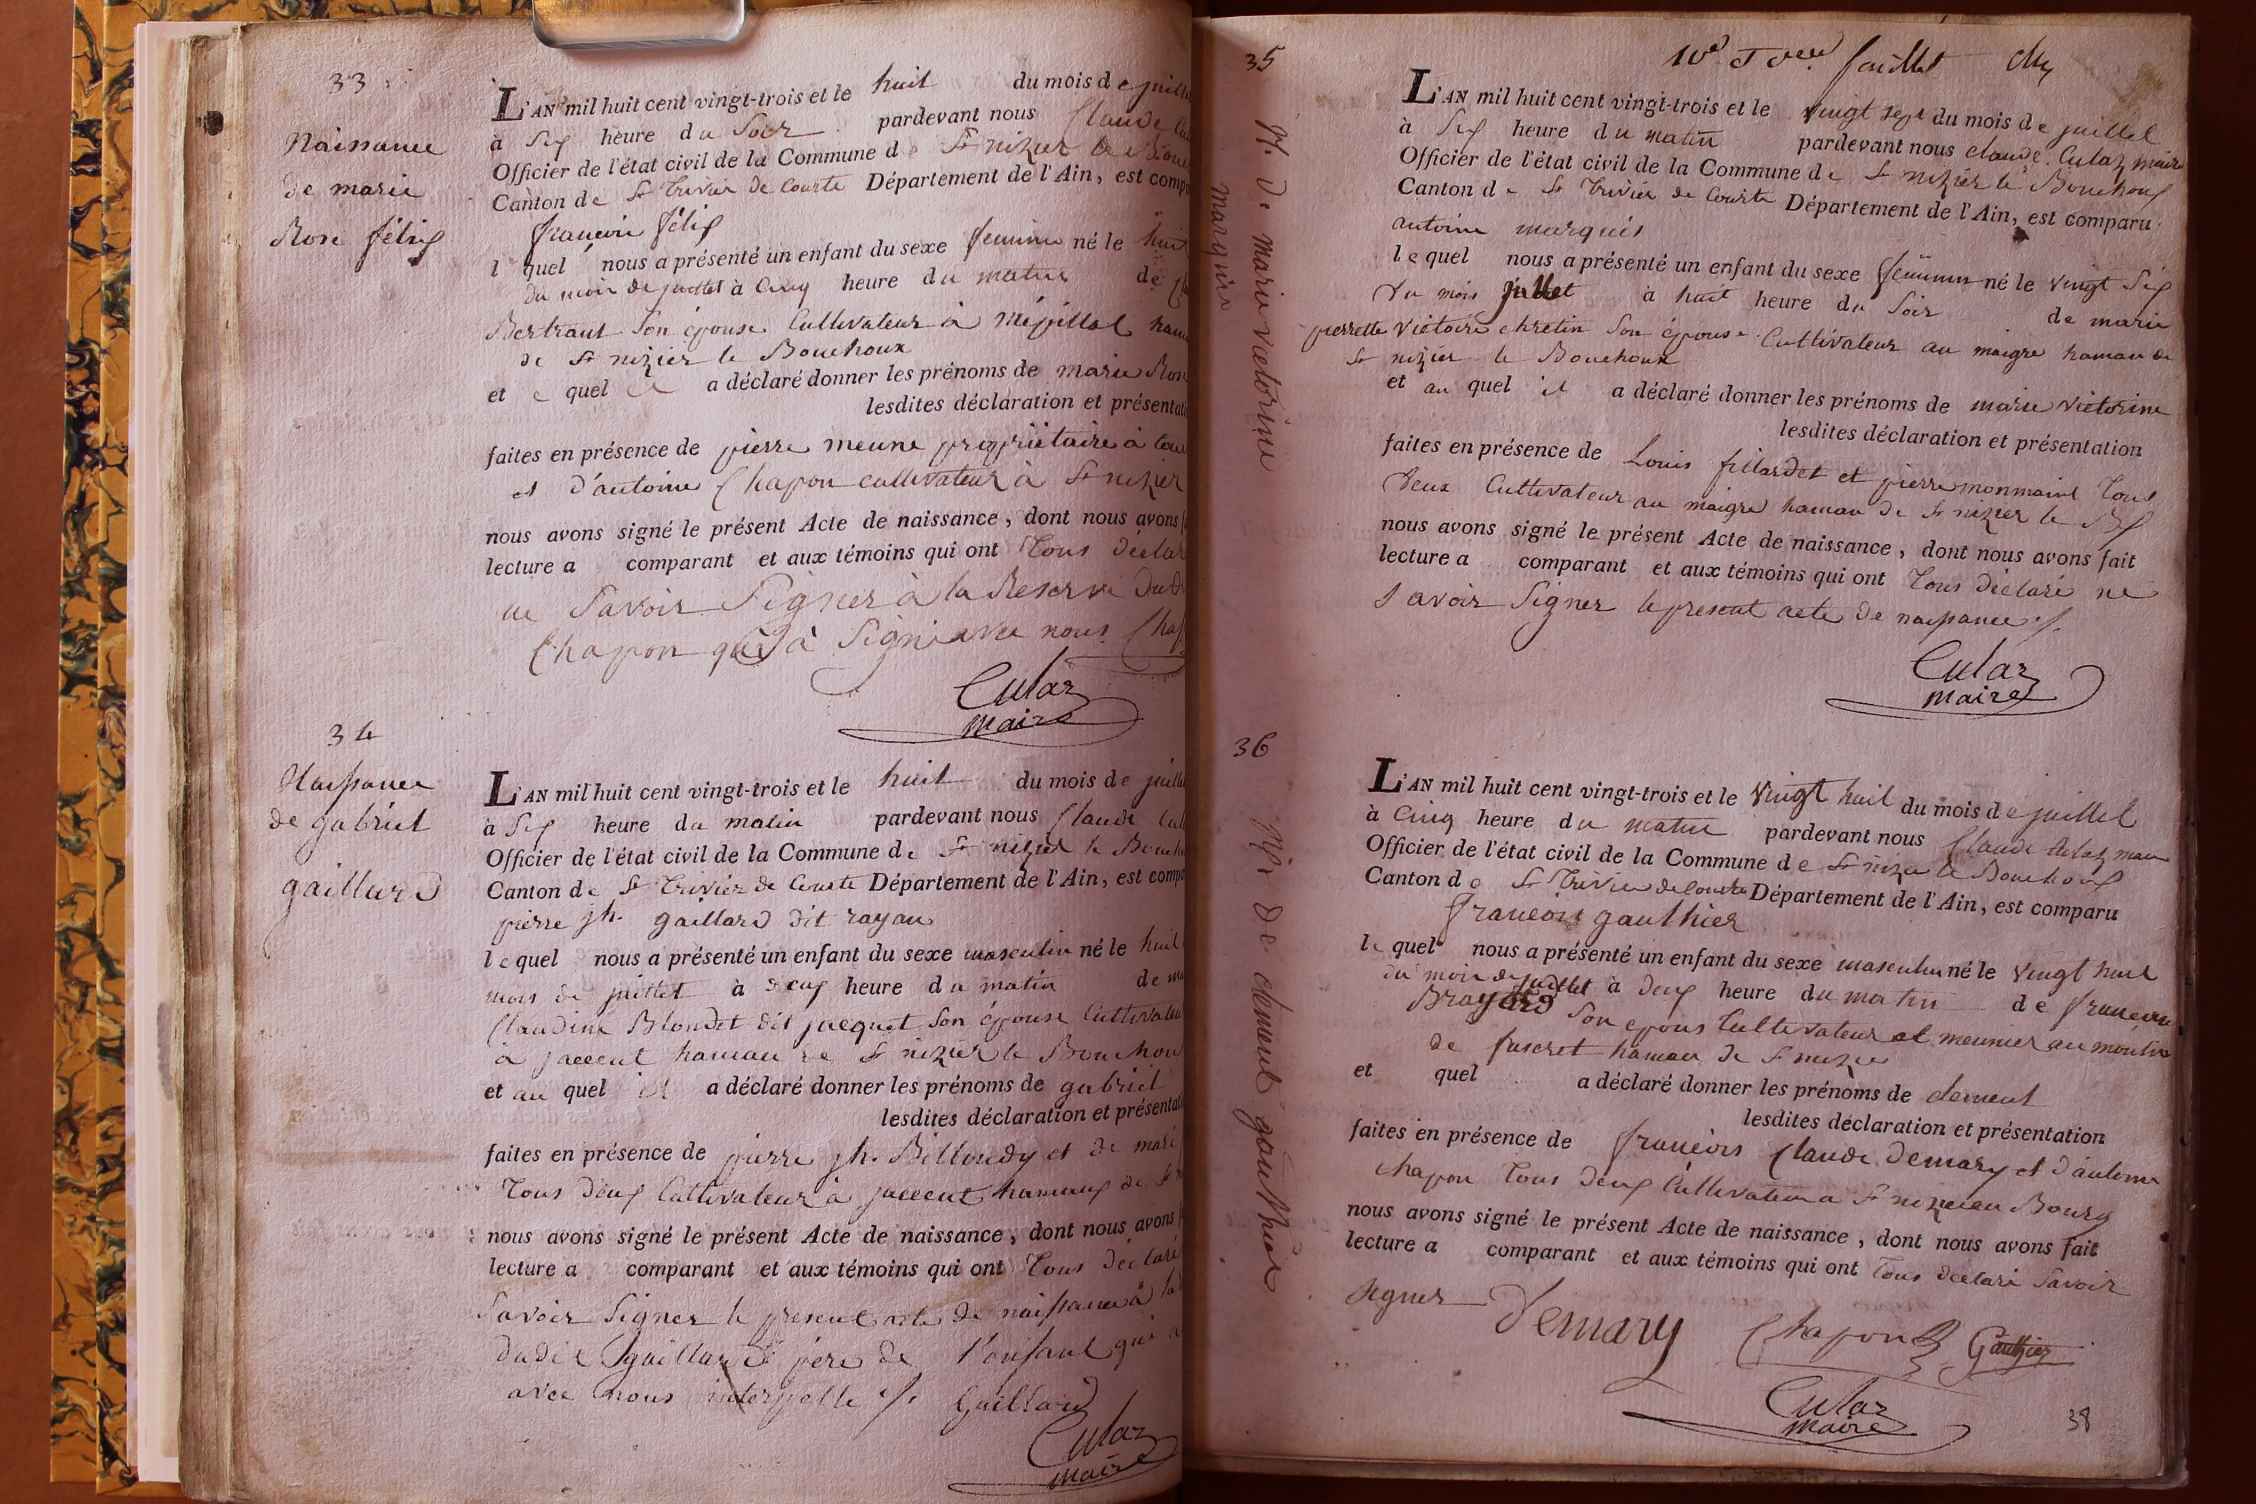 33
Naissance
de marie
Rose félix
L'AN mil huit cent vingt-trois et le huit du mois de juillet
à Six heure du Soir pardevant nous Claude
Officier de l'état civil de la Commune de St nizier le
Canton de St Trivier de Courte Département de l'Ain, est comp
françois félix
l quel nous a présenté un enfant du sexe feminin né le huit
du mois de juillet à Cinq heure du matin de
Bertraut Son épouse Cultivateur à mépillat ham
de St nizier le Bouchoux
et quel a déclaré donner les prénoms de marie Rose
lesdites déclaration et présentati
faites en présence de pierre meune propriétaire à
et d'antoine Chapon cultivateur à St nizier
nous avons signé le présent Acte de naissance, dont nous avons
lecture a comparant et aux témoins qui ont Tous déclar
ne Savoir Signer à la Reserve Dud
Chapon qui à Signé avec nous Chap
Culaz
maire
34
Naissance
de gabriel
gaillard
L'AN mil huit cent vingt-trois et le huit du mois de juillet
à Six heure du matin pardevant nous Claude Cul
Officier de l'état civil de la Commune de St nizier le Bouch
Canton de St Trivier de Courte Département de l'Ain, est comp
pierre jh. gaillard dit rayau
le quel nous a présenté un enfant du sexe masculin né le huit
mois de juillet à deux heure du matin de
Claudine Blondet dit jacquet Son épouse Cultivateur
à hamau de St nizier le Bouchoux
et au quel il a déclaré donner les prénoms de gabriel
lesdites déclaration et présentat
faites en présence de pierre jh. Billoudy et de
Tous deux Cultivateur à hamaux de St
nous avons signé le présent Acte de naissance, dont nous avons
lecture a comparant et aux témoins qui ont Tous déclaré
Savoir Signer le present acte de naissance à la
dudit gaillard père de l'enfant qui a
avec nous interpelle Gaillard
Culaz
maire
feuillet
35
N. de marie victorine
marquis
L'AN mil huit cent vingt-trois et le vingt sept du mois de juillet
à Six heure du matin pardevant nous claude Culaz maire
Officier de l'état civil de la Commune de St nizier le Bouchoux
Canton de St Trivier de Courte Département de l'Ain, est comparu
antoine marquis
le quel nous a présenté un enfant du sexe feminin né le vingt Six
Du mois juillet à huit heure du Soir de marie
pierrette Victoire chretin Son épouse Cultivateur au maigre hamau de
St nizier le Bouchoux
et au quel il a déclaré donner les prénoms de marie victorine
lesdites déclaration et présentation
faites en présence de Louis fillardet et pierre monmaint Tous
Deux Cultivateur au maigre hamau de St nizier le Bx
nous avons signé le présent Acte de naissance, dont nous avons fait
lecture a comparant et aux témoins qui ont Tous déclaré ne
Savoir Signer le present acte de naissance
Culaz
maire
36
N. de clement gauthier
L'AN mil huit cent vingt-trois et le vingt huit du mois de juillet
à Cinq heure du matin pardevant nous Claude Culaz maire
Officier de l'état civil de la Commune de St nizier le Bouchoux
Canton de St Trivier de Courte Département de l'Ain, est comparu
françois gauthier
le quel nous a présenté un enfant du sexe masculin né le vingt huit
du mois de juillet à deux heure du matin de françoise
Brayard Son epous Cultivateur et meunier au moulin
de fuscret hamau de St nizier
et quel a déclaré donner les prénoms de clement
lesdites déclaration et présentation
faites en présence de françois Claude Demary et d'antoine
Chapon Tous deux Cultivateur a St nizier au Bourg
nous avons signé le présent Acte de naissance, dont nous avons fait
lecture a comparant et aux témoins qui ont Tous declaré Savoir
Signer Demary Chapon Gauthier
Culaz
maire
38